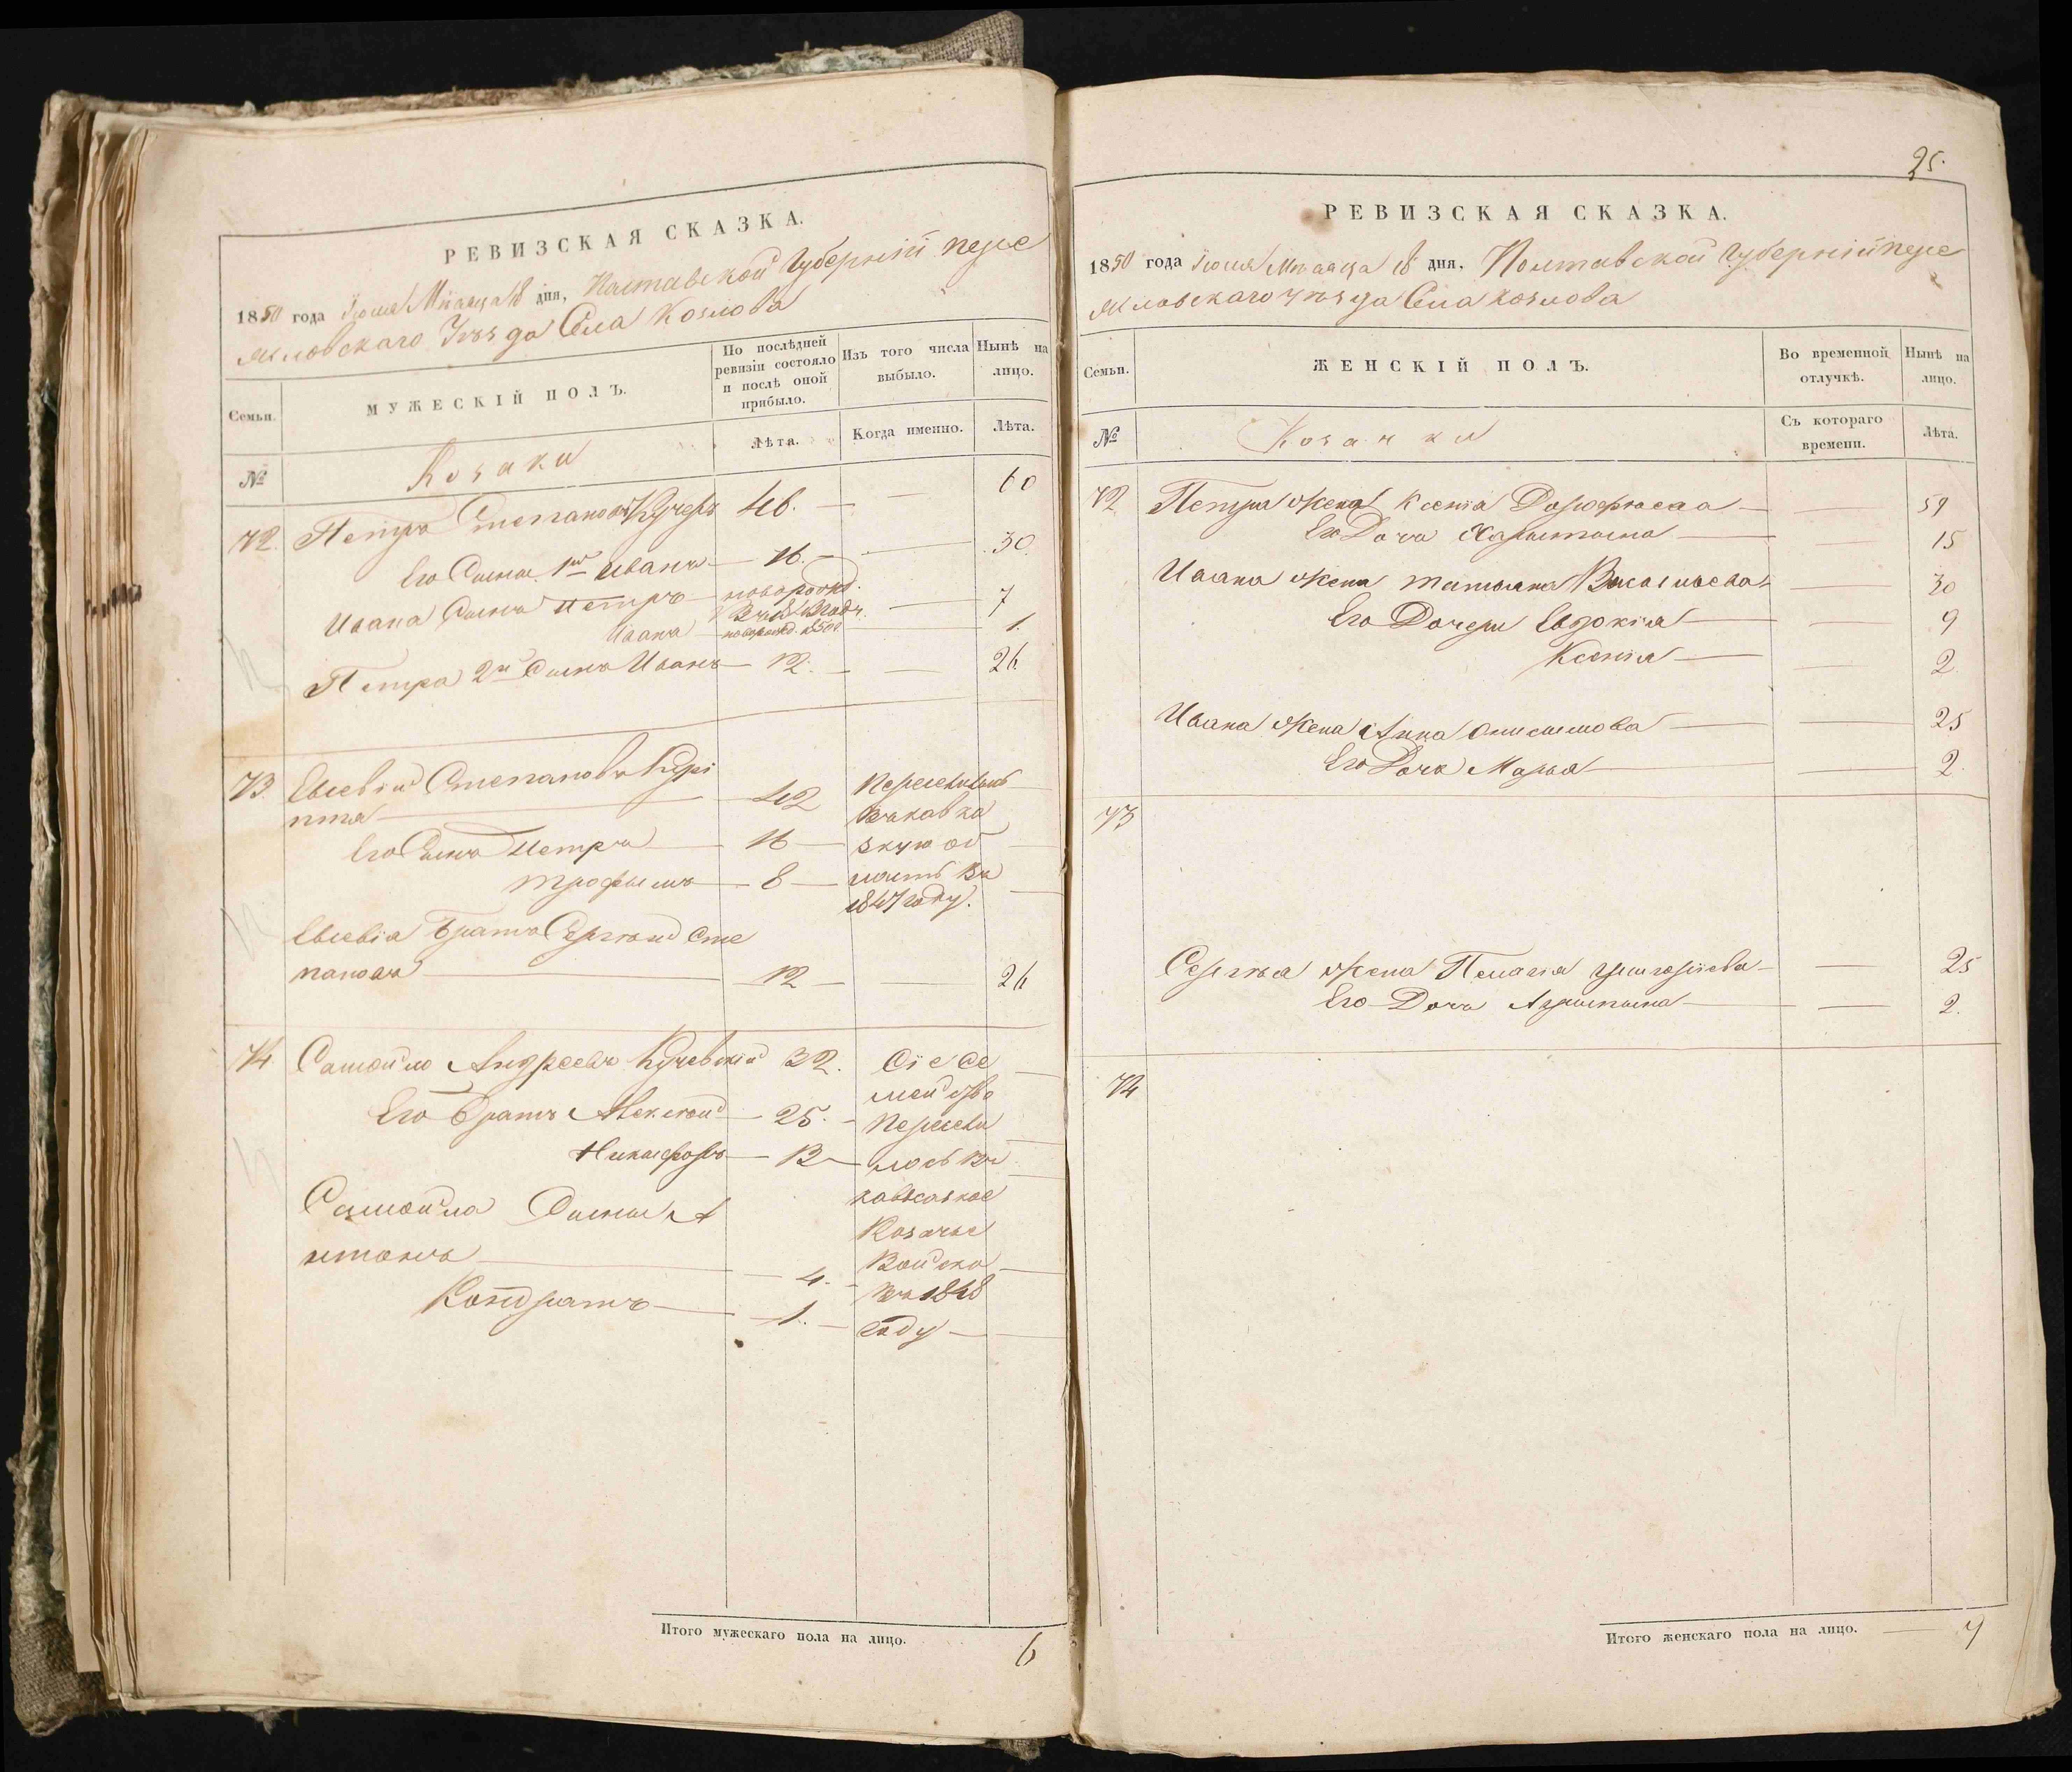 РЕВИЗСКАЯ СКАЗКА.
1850 года Іюня Мѣсяца 18 дня, Полтавской Губерніи пере
яславскаго Уѣзда Села Козлова
Семьи.
МУЖЕСКІЙ ПОЛЪ.
По послѣдней ревизіи состояло и послѣ оной прибыло.
Изъ того числа выбыло.
Нынѣ на лицо.
№
Козаки
Лѣта.
Когда именно.
Лѣта.
72. Петръ Степановъ 46. — — 60
Его Сыны 1й Иванъ — 16. — — 30.
Ивана Сынъ Петръ — новорожд. — 7
Иванъ — новорожд. 1850 1.
Петра 2й Сынъ Иванъ — 12. — — 26
73. Евсевій Степановъ Курі
пта — 42 Переселились
въ кавка
Его Сынъ Петръ — 16 — зкую об
Трофимъ — 8 — ласть въ
1847 году.
Евсевія Братъ Сергѣй Сте
пановъ — 12 — 26
74 Самойло Андреевъ Кучевскій 32. Сіе Се
мейство
Его Братъ Алексѣй — 25. — Пересели
Никифоръ — 13 — лось въ
Самойла Сыны А кавказкое
Козачье
нтонъ — 4. — Войско
въ 1848
Кондратъ — 1. — году —
Итого мужескаго пола на лицо. 6
25.
РЕВИЗСКАЯ СКАЗКА.
1850 года Іюня Мѣсяца 18 дня, Полтавской Губерніи пере
яславскаго уѣзда Села козлова
Семьи.
ЖЕНСКІЙ ПОЛЪ.
Во временной отлучкѣ.
Нынѣ на лицо.
№
Козачки
Съ котораго времени.
Лѣта.
72 Петра жена Ксенія Дорофѣева — — 59
Его Дочь Харитина — — 15
Ивана жена татіана Васильева — — 30
Его Дочери Евдокія — — 9
Ксенія — — 2.
Ивана жена Анна Онисимова — — 25
Его Дочь Марья — — 2.
73
Сергѣя жена Пелагія григоріева — — 25
Его Дочь Агрипина — — 2.
74
Итого женскаго пола на лицо. — 9